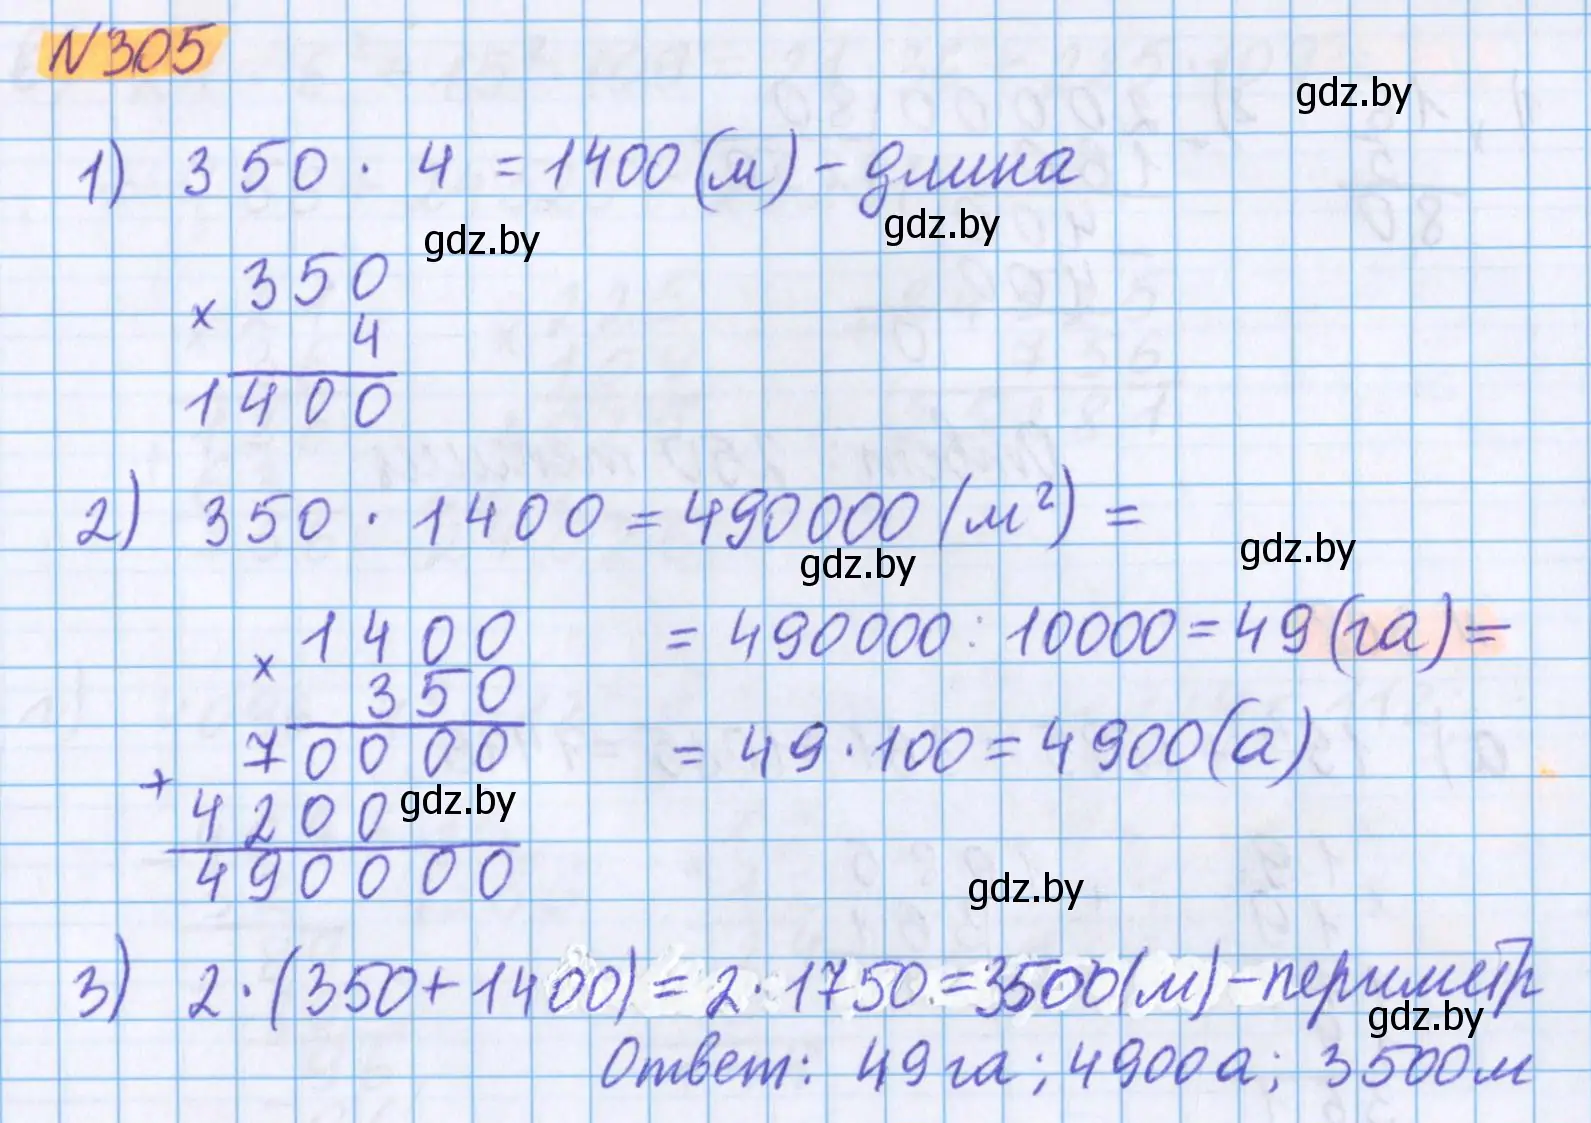 N305
gdz.by
1) 350 · 4 = 1400 (м) - длина
gdz.by gdz.by
350
× 4
1400
2) 350 · 1400 = 490000 (м²) =
gdz.by gdz.by
1400
× 350
= 490000 : 10000 = 49 (га) =
70000
= 49 · 100 = 4900 (а)
+ 4200 gdz.by
490000
gdz.by
3) 2 · (350 + 1400) = 2 · 1750 = 3500 (м) - периметр
gdz.by
Ответ: 49 га; 4900 а; 3500 м